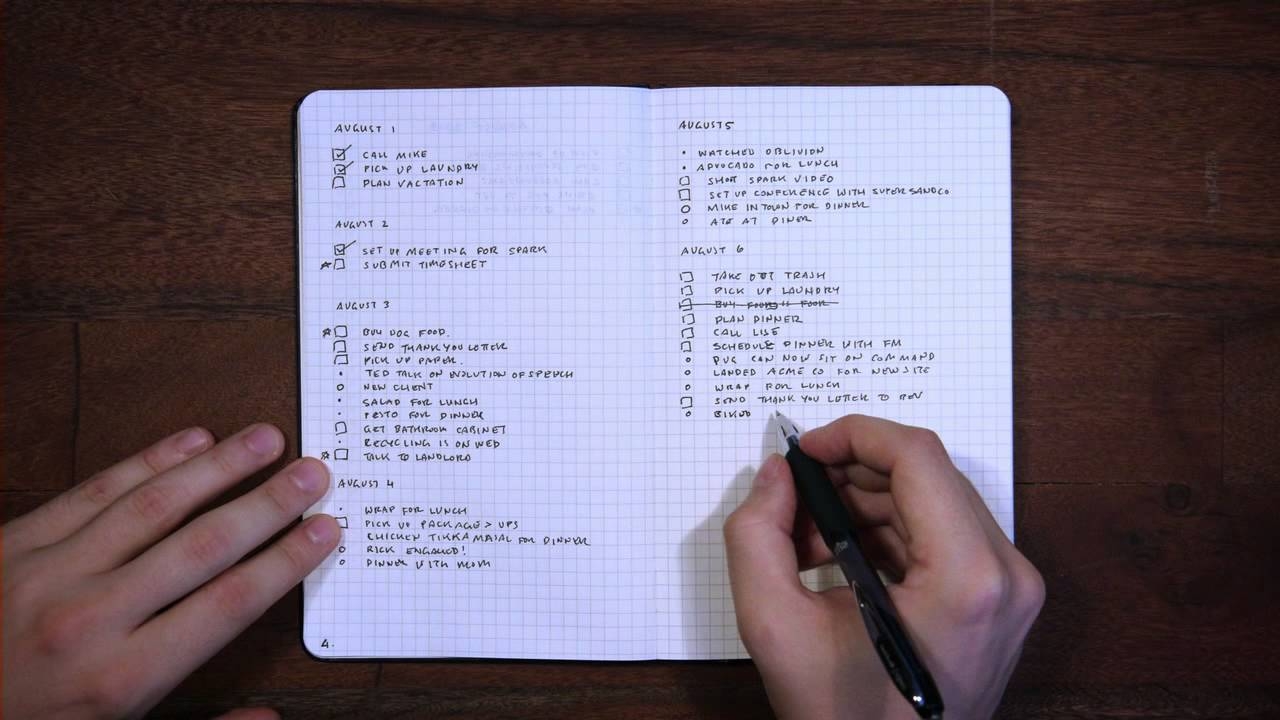 AUGUST 1
CALL MIKE
PICK UP LAUNDRY
PLAN VACTATION
AUGUST 2
SET UP MEETING FOR SPARK
SUBMIT TIMESHEET
AUGUST 3
BUY DOG FOOD.
SEND THANK YOU LETTER
PICK UP PAPER.
TED TALK ON EVOLUTION OF SPEECH
NEW CLIENT
SALAD FOR LUNCH
PESTO FOR DINNER
GET BATHROOM CABINET
RECYCLING IS ON WED
TALK TO LANDLORD
AUGUST 4
WRAP FOR LUNCH
PICK UP PACKAGE > UPS
CHICKEN TIKKA MASAL FOR DINNER
RICK ENGAGED!
DINNER WITH MOM
4.
AUGUST 5
WATCHED OBLIVION
ADVOCADO FOR LUNCH
SHOOT SPARK VIDEO
SET UP CONFERENCE WITH SUPERSANDCO
MIKE IN TOWN FOR DINNER
ATE AT DINER
AUGUST 6
TAKE OUT TRASH
PICK UP LAUNDRY
BUY
PLAN DINNER
CALL LISE
SCHEDULE DINNER WITH FM
PUG CAN NOW SIT ON COMMAND
LANDED ACME CO FOR NEW SITE
WRAP FOR LUNCH
SEND THANK YOU LETTER TO BEN